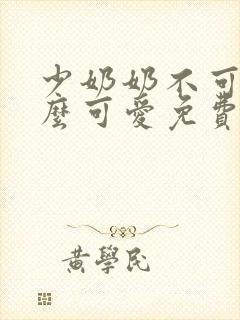 少奶奶不可
麼可愛免費
黃學民